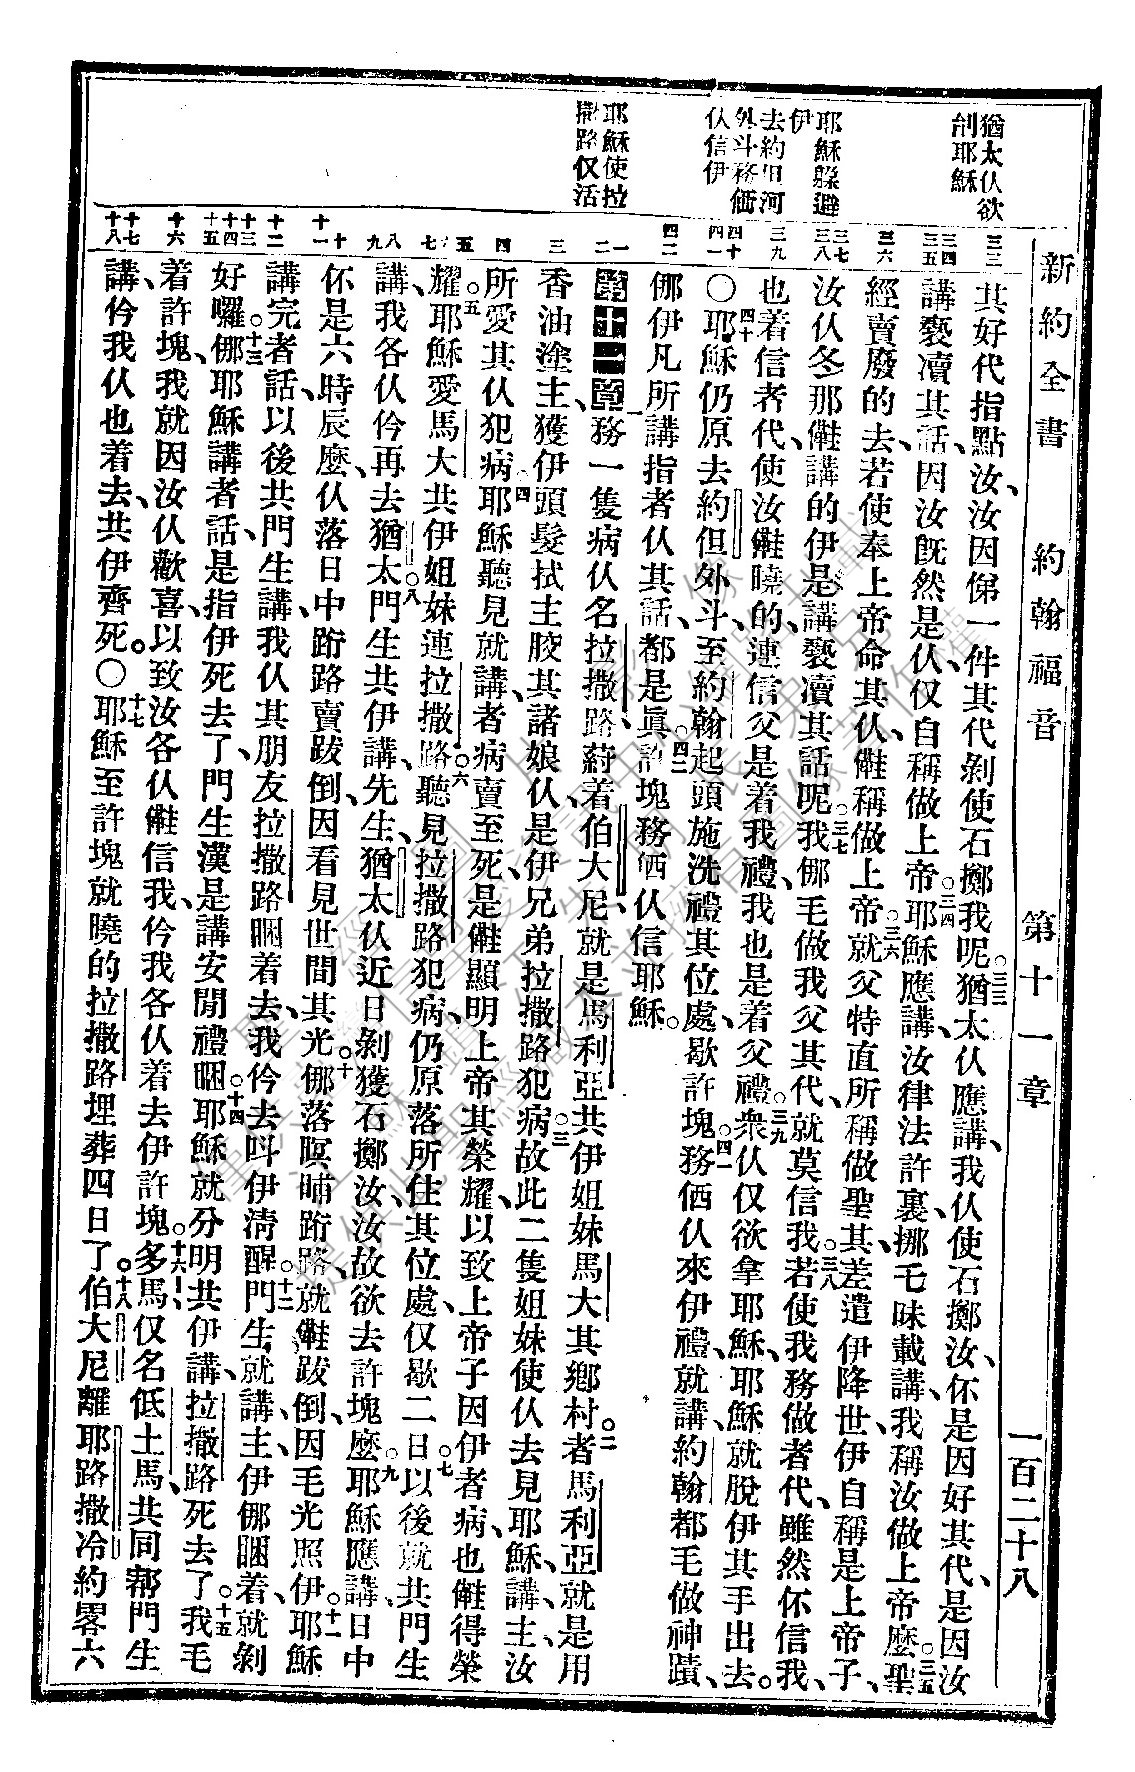 新約全書　約翰福音　第十一章　一百二十八
猶太仈欲
刣耶穌
耶穌躲避
伊
去約旦河
外斗務価
仈信伊
耶穌使拉
撒路仅活
三三
三四
三五
三六
三七
三八
三九
四十
四一
四二
一
二
三
四
五
六
七
八
九
十
十一
十二
十三
十四
十五
十六
十七
十八
其好代指點汝、汝因俤一件其代剝使石擲我呢。三三猶太仈應講、我仈使石擲汝、伓是因好其代、是因汝
講褻凟其話、因汝旣然是仈、仅自稱做上帝。三四耶穌應講、汝律法許裏、挪乇昧載講、我稱汝做上帝麽。三五聖
經賣廢的去、若使奉上帝命其仈、㑚稱做上帝、三六就父特直所稱做聖其、差遣伊降世、伊自稱是上帝子、
汝仈冬那㑚講的伊是講褻凟其話呢。三七我㑚毛做我父其代、就莫信我。三八若使我務做者代、雖然伓信我、
也着信者代、使汝㑚曉的、連信父是着我禮、我也是着父禮。三九衆仈仅欲拿耶穌、耶穌就脫伊其手出去。
四十〇耶穌仍原去約但外斗、至約翰起頭施洗禮其位處、歇許塊。四一務価仈來伊禮、就講、約翰都毛做神蹟、
㑚伊凡所講指者仈其話、都是眞。四二許塊務価仈信耶穌。
第十一章一務一隻病仈、名拉撒路、蹛着伯大尼、就是馬利亞共伊姐妹馬大其鄉村。二者馬利亞、就是用
香油塗主、獲伊頭髮拭主骹其諸娘仈、是伊兄弟拉撒路犯病。三故此二隻姐妹使仈去見耶穌、講、主、汝
所愛其仈犯病。四耶穌聽見就講、者病賣至死、是㑚顯明上帝其榮耀、以致上帝子因伊者病、也㑚得榮
耀。五耶穌愛馬大共伊姐妹連拉撒路。六聽見拉撒路犯病、仍原落所住其位處、仅歇二日。七以後就共門生
講、我各仈伶再去猶太。八門生共伊講、先生、猶太仈近日剝獲石擲汝、汝故欲去許塊麽。九耶穌應講、日中
伓是六時辰麽、仈落日中𧿳路賣跋倒、因看見世間其光。十㑚落暝晡𧿳路、就㑚跋倒、因毛光照伊。十一耶穌
講完者話、以後共門生講、我仈其朋友拉撒路睏着去、我伶去呌伊淸醒。十二門生就講、主、伊㑚睏着、就剝
好囉。十三㑚耶穌講者話、是指伊死去了、門生漢是講安閒禮睏。十四耶穌就分明共伊講、拉撒路死去了。十五我毛
着許塊、我就因汝仈歡喜、以致汝各仈㑚信我、伶我各仈着去伊許塊。十六多馬仅名低土馬、共同幫門生
講、伶我仈也着去、共伊齊死。〇十七耶穌至許塊、就曉的拉撒路埋葬四日了。十八伯大尼離耶路撒冷約畧六